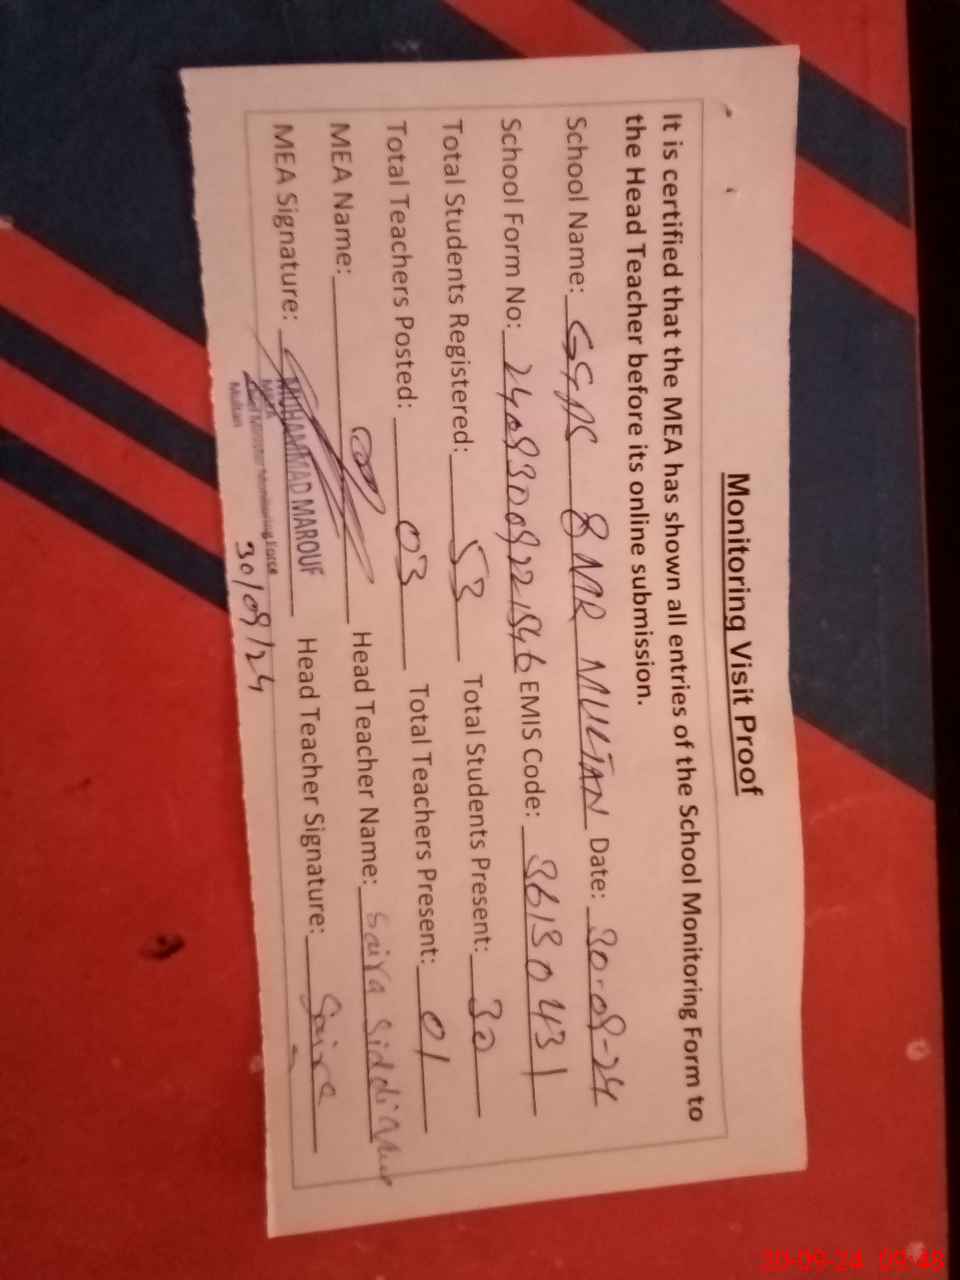 Monitoring Visit Proof
It is certified that the MEA has shown all entries of the School Monitoring Form to
the Head Teacher before its online submission.
School Name: GGPS 8 MR MULTAN Date: 30-09-24
School Form No: 24093009221546 EMIS Code: 36130431
Total Students Registered: 53 Total Students Present: 30
Total Teachers Posted: 03 Total Teachers Present: 01
MEA Name: Head Teacher Name: Saira Siddique
MEA Signature: MUHAMMAD MAROUF Head Teacher Signature: Saira
MEA
Chief Minister Monitoring Force
Multan
30/09/24
30-09-24 09:48